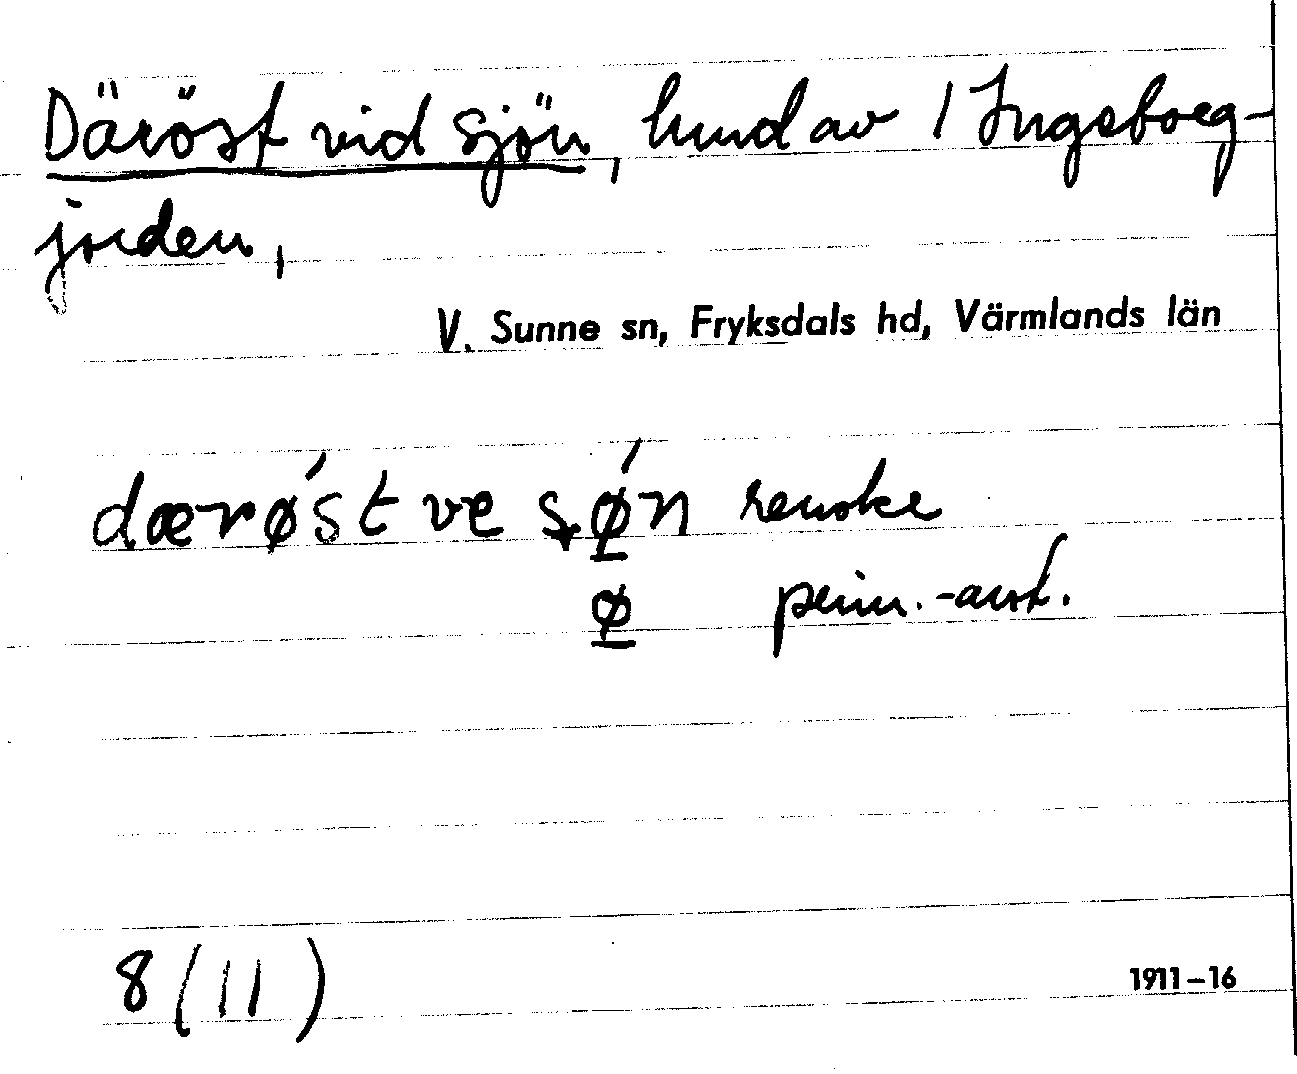 Däröst vid sjön, lund av 1 Ingeborg-
jorden,
V. Sunne sn, Fryksdals hd, Värmlands län
dærø´st ve sø´n renskr
ø prim.-ant.
8 (11)
1911–16